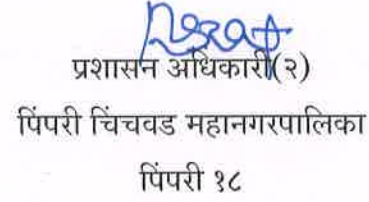 प्रशासन अधिकारी(२)
पिंपरी चिंचवड महानगरपालिका
पिंपरी १८